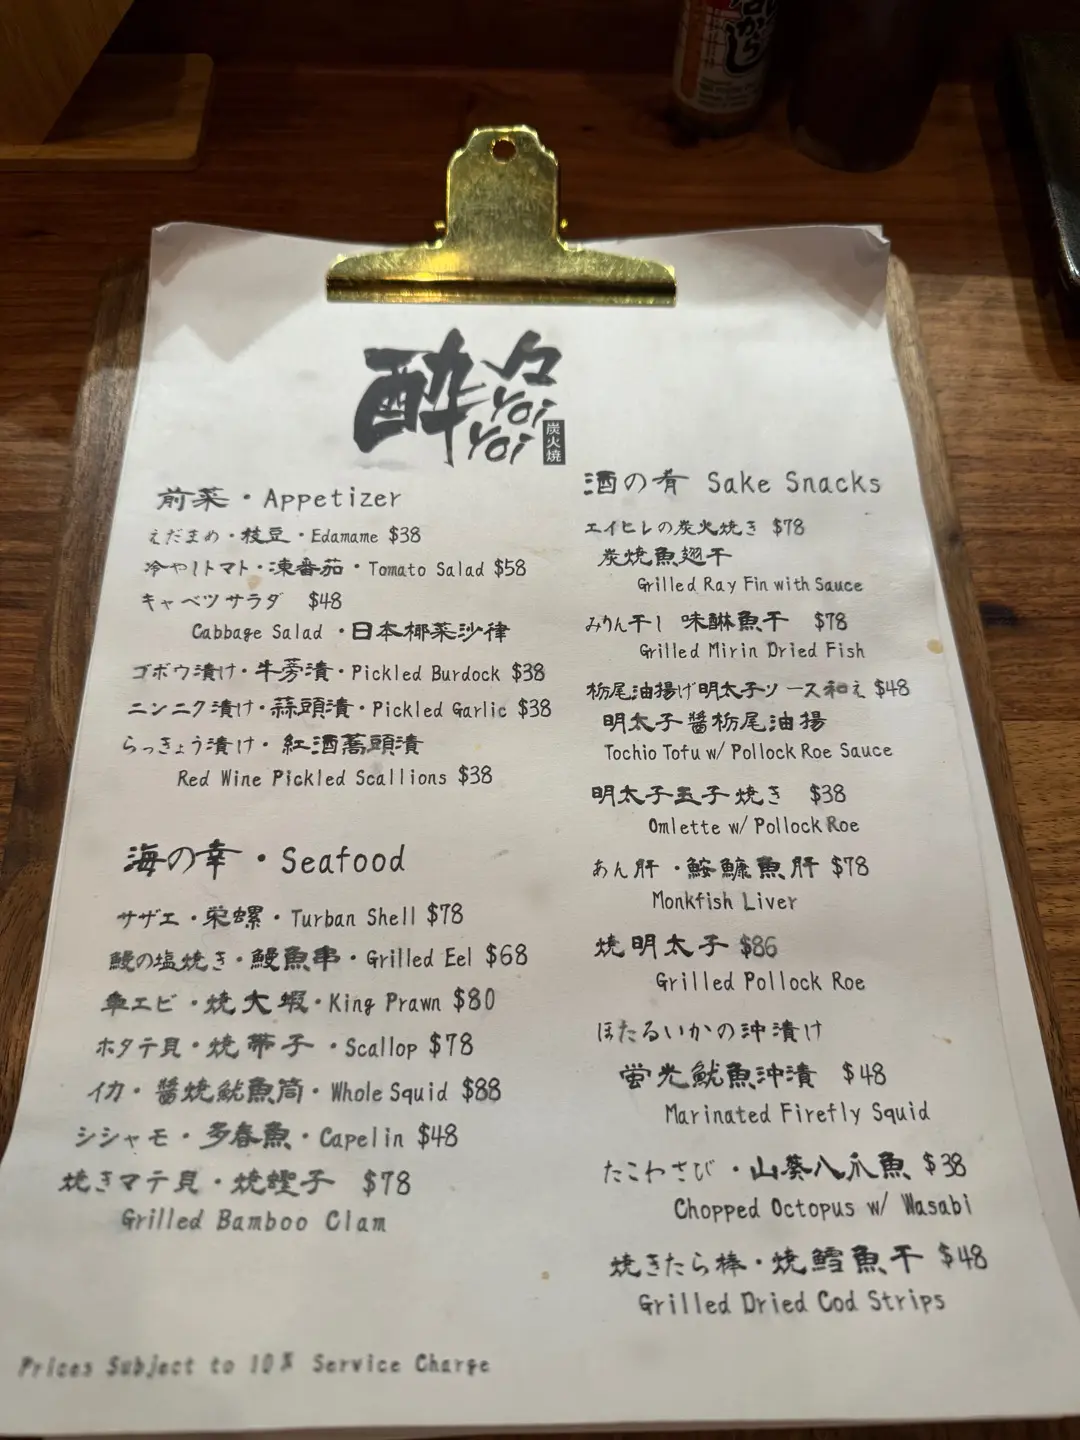 からし
酔々
Yoi
Yoi
炭火焼
前菜・Appetizer
えだまめ・枝豆・Edamame $38
冷やしトマト・凍番茄・Tomato Salad $58
キャベツサラダ $48
Cabbage Salad ・日本椰菜沙律
ゴボウ漬け・牛蒡漬・Pickled Burdock $38
ニンニク漬け・蒜頭漬・Pickled Garlic $38
らっきょう漬け・紅酒蕎頭漬
Red Wine Pickled Scallions $38
海の幸・Seafood
サザエ・栄螺・Turban Shell $78
鰻の塩焼き・鰻魚串・Grilled Eel $68
車エビ・焼大蝦・King Prawn $80
ホタテ貝・焼帶子・Scallop $78
イカ・醬焼魷魚筒・Whole Squid $88
シシャモ・多春魚・Capelin $48
焼きマテ貝・焼蟶子 $78
Grilled Bamboo Clam
酒の肴 Sake Snacks
エイヒレの炭火焼き $78
炭焼魚翅干
Grilled Ray Fin with Sauce
みりん干し 味醂魚干 $78
Grilled Mirin Dried Fish
栃尾油揚げ明太子ソース和え $48
明太子醬栃尾油揚
Tochio Tofu w/ Pollock Roe Sauce
明太子玉子焼き $38
Omlette w/ Pollock Roe
あん肝・鮟鱇魚肝 $78
Monkfish Liver
焼明太子 $86
Grilled Pollock Roe
ほたるいかの沖漬け
蛍光魷魚沖漬 $48
Marinated Firefly Squid
たこわさび・山葵八爪魚 $38
Chopped Octopus w/ Wasabi
焼きたら棒・焼鱈魚干 $48
Grilled Dried Cod Strips
Prices Subject to 10% Service Charge